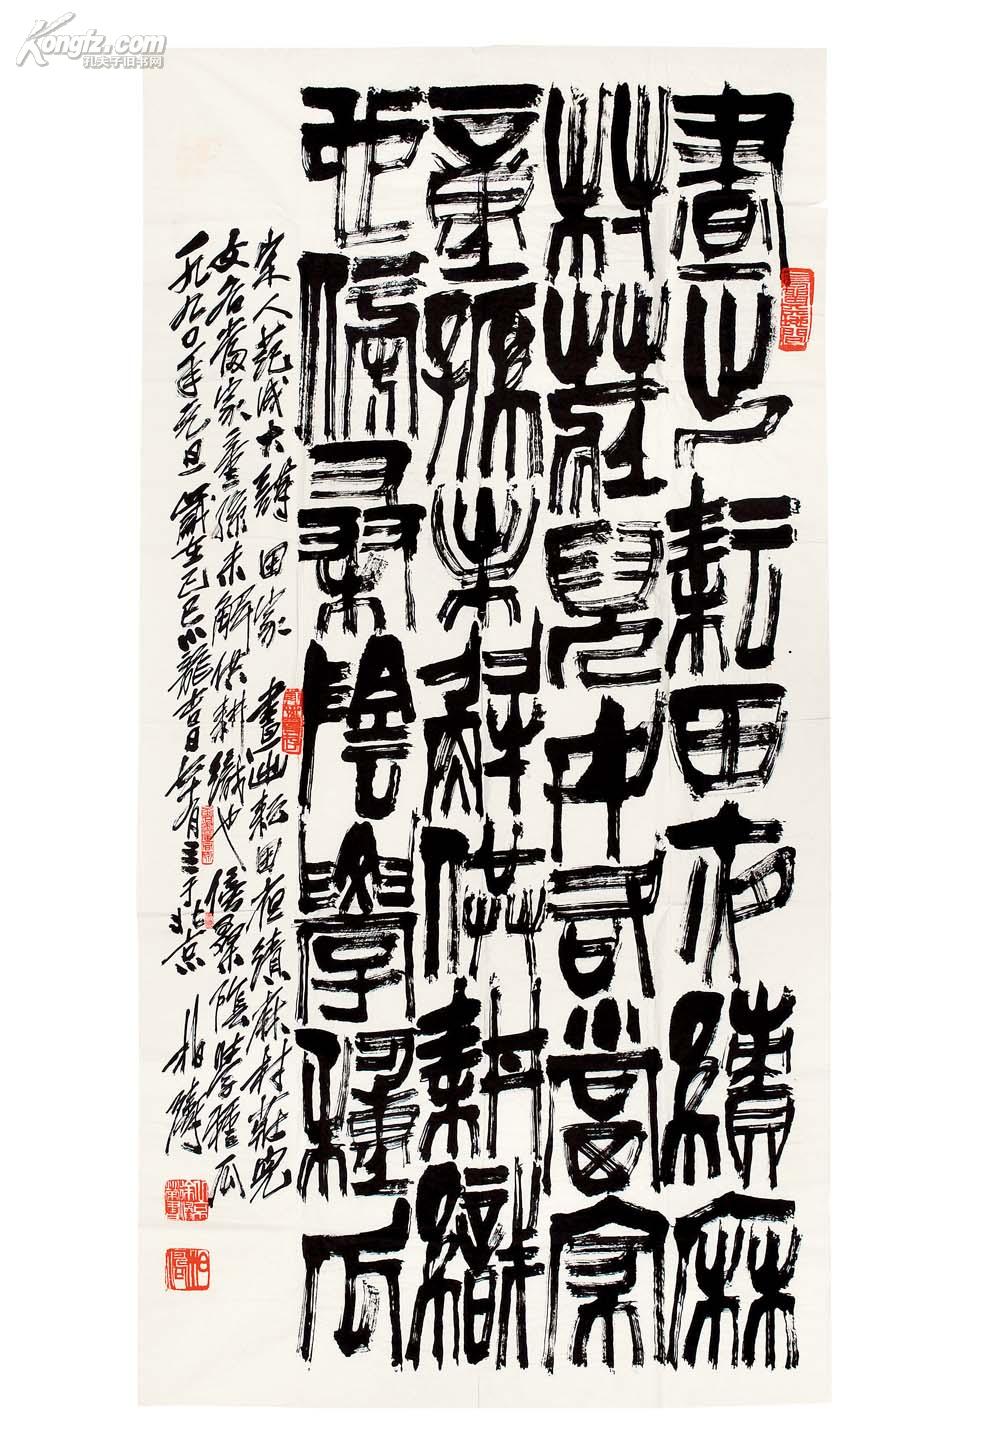 Kongfz.com
孔夫子旧书网
晝出耘田夜績麻
村莊兒女各當家
童孫未解供耕織
也傍桑陰學種瓜
宋人范成大詩 田家 晝出耘田夜績麻村莊兒
女各當家童孫未解供耕織也傍桑陰學種瓜
一九九〇年元旦歲在己巳小龍吉日 有三于北京 柏濤